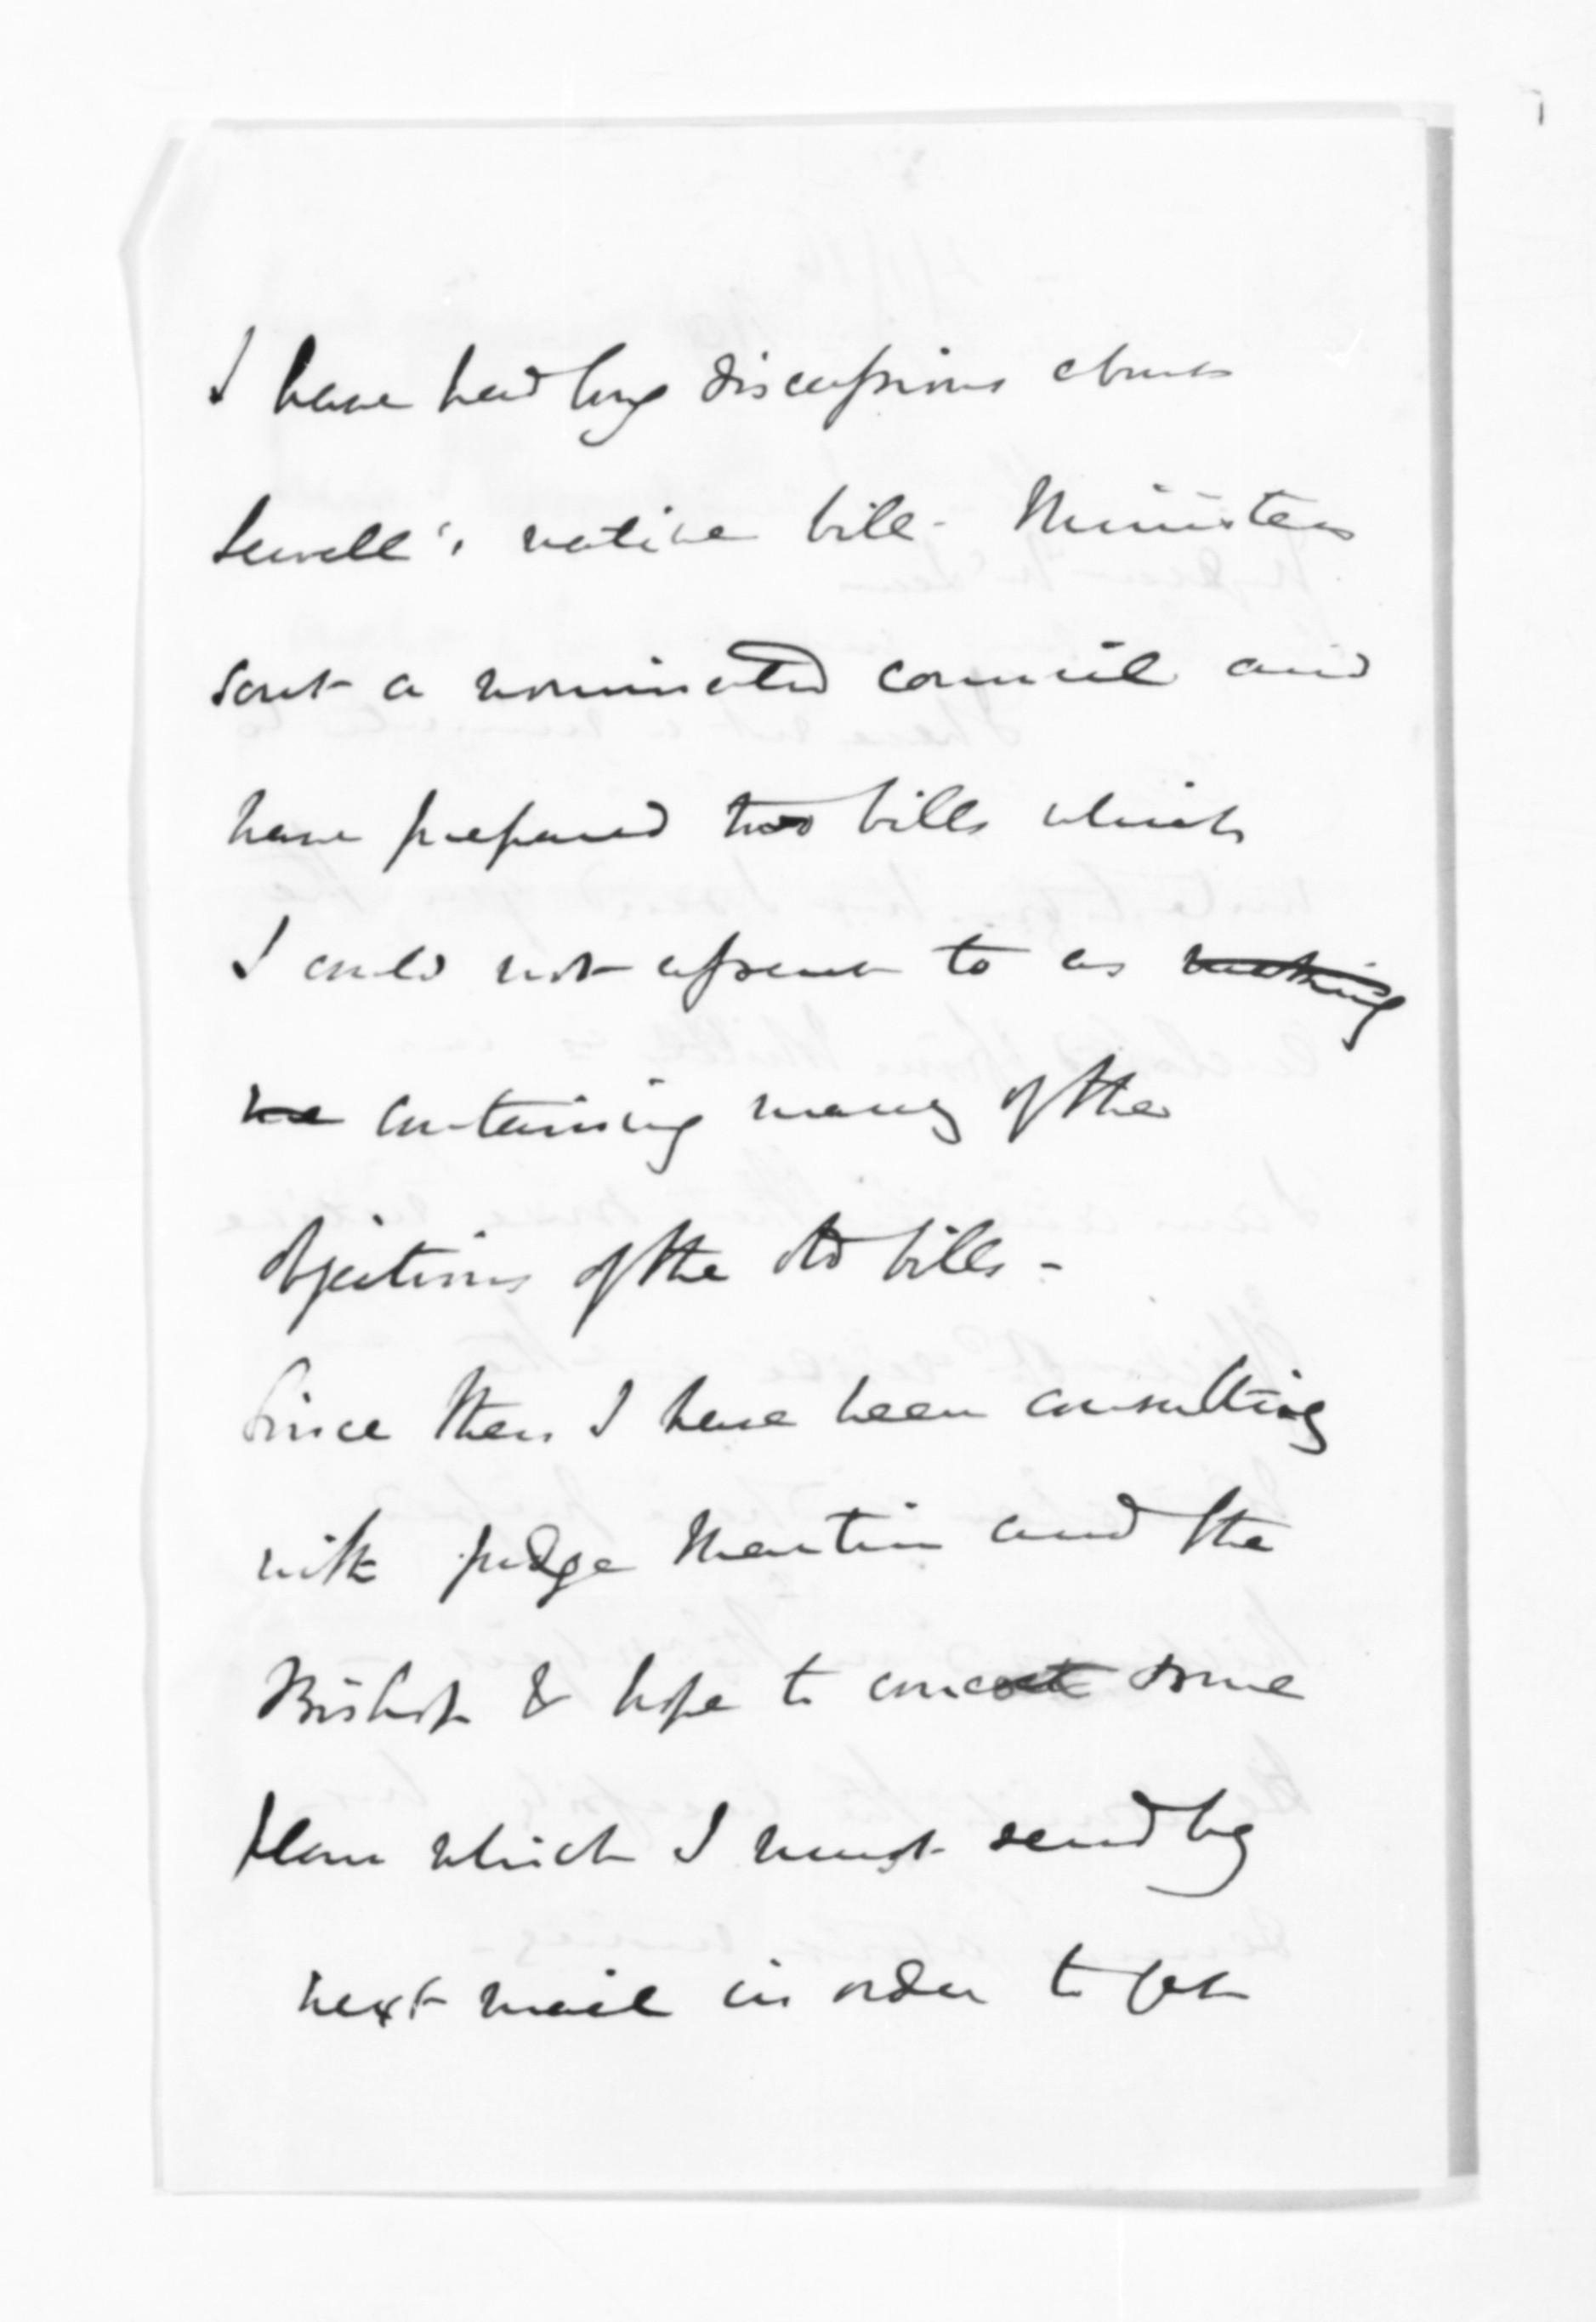 I have had long discussions about
Sewell's native bill - Ministers
want a nominated council and
have prepared two bills which
I could not assent to as nothing
containing many of the
objections of the old bills -
Since then I have been consulting
with judge Martin and the
Bishop & hope to concoct some
plan which I must send by
next mail in order to get